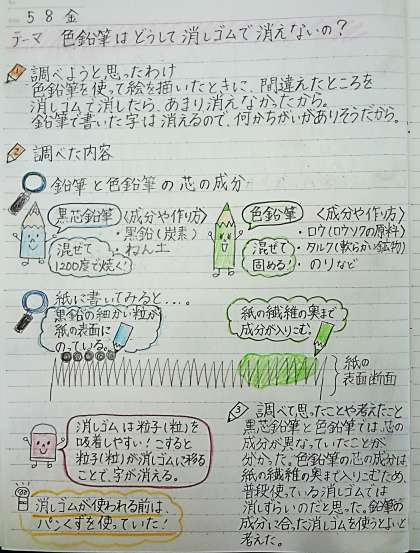 5 8 金
テーマ 色鉛筆はどうして消しゴムで消えないの？
1 調べようと思ったわけ
色鉛筆を使って絵を描いたときに、間違えたところを
消しゴムで消したら、あまり消えなかったから。
鉛筆で書いた字は消えるので、何かちがいがありそうだから。
2 調べた内容
鉛筆と色鉛筆の芯の成分
黒芯鉛筆
〈成分や作り方〉
・黒鉛（炭素）
・ねん土
混ぜて
1200度で焼く！
色鉛筆
〈成分や作り方〉
・ロウ（ロウソクの原料）
・タルク（軟らかい鉱物）
・のりなど
混ぜて
固める！
紙に書いてみると…。
黒鉛の細かい粒が
紙の表面に
のっている。
紙の繊維の奥まで
成分が入りこむ。
紙の
表面断面
消しゴムは粒子（粒）を
吸着しやすい！こすると
粒子（粒）が消しゴムに移る
ことで、字が消える。
消しゴムが使われる前は、
パンくずを使っていた！
3 調べて思ったことや考えたこと
黒芯鉛筆と色鉛筆では、芯の
成分が異なっていたことが
分かった。色鉛筆の芯の成分は
紙の繊維の奥まで入りこむため、
普段使っている消しゴムでは
消しずらいのだと思った。鉛筆の
成分に合った消しゴムを使うとよいと
考えた。